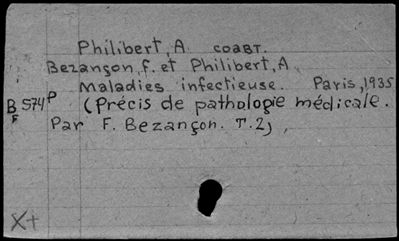 Philibert, A соавт.
Bezançon, F. et Philibert, A
Maladies infectieuse. Paris, 1935
B 574 P (Précis de pathologie médicale.
F
Par F. Bezançon. T.2),
X+